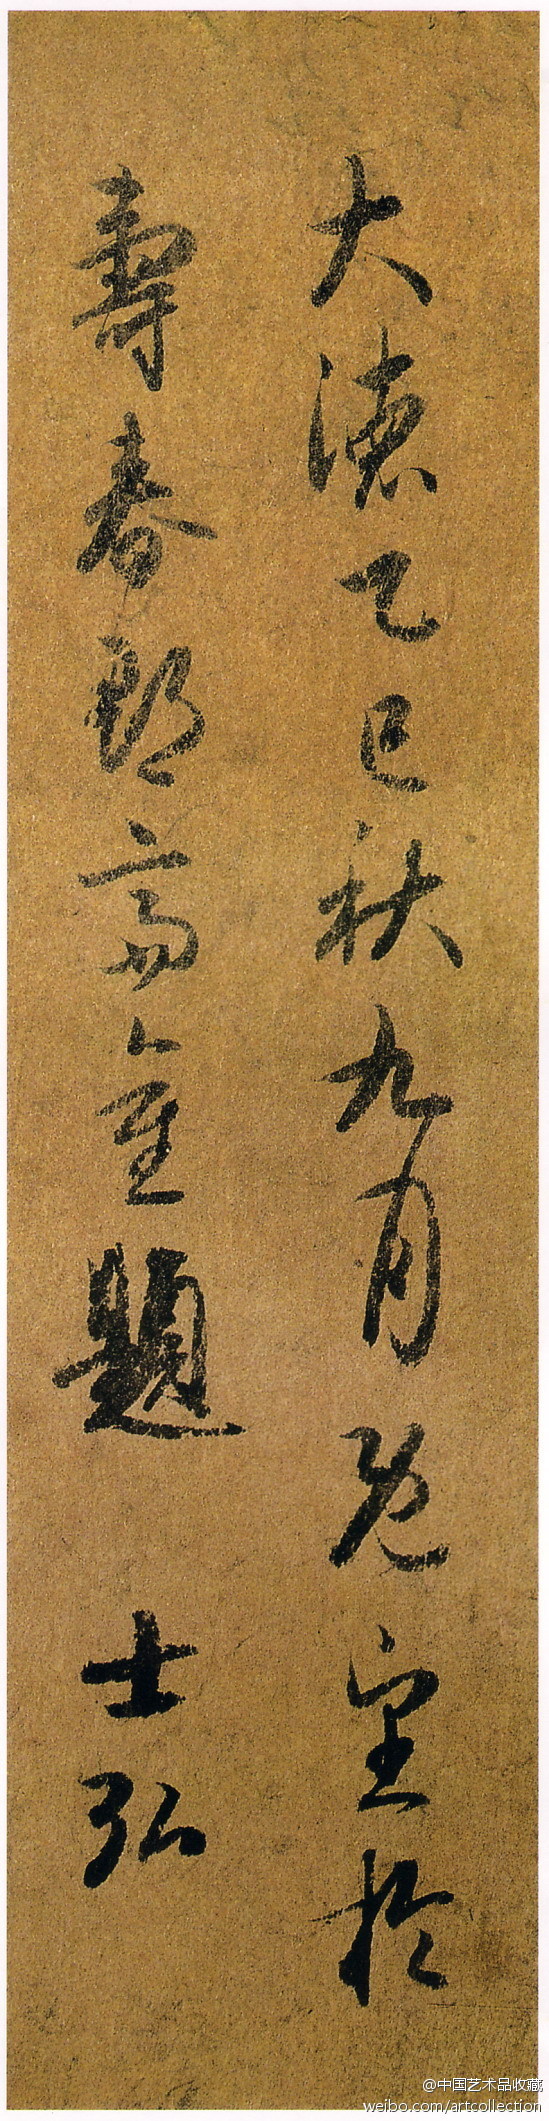 大德乙巳秋九月既望於
壽春郡齋重題 士弘
@中国艺术品收藏
weibo.com/artcollection